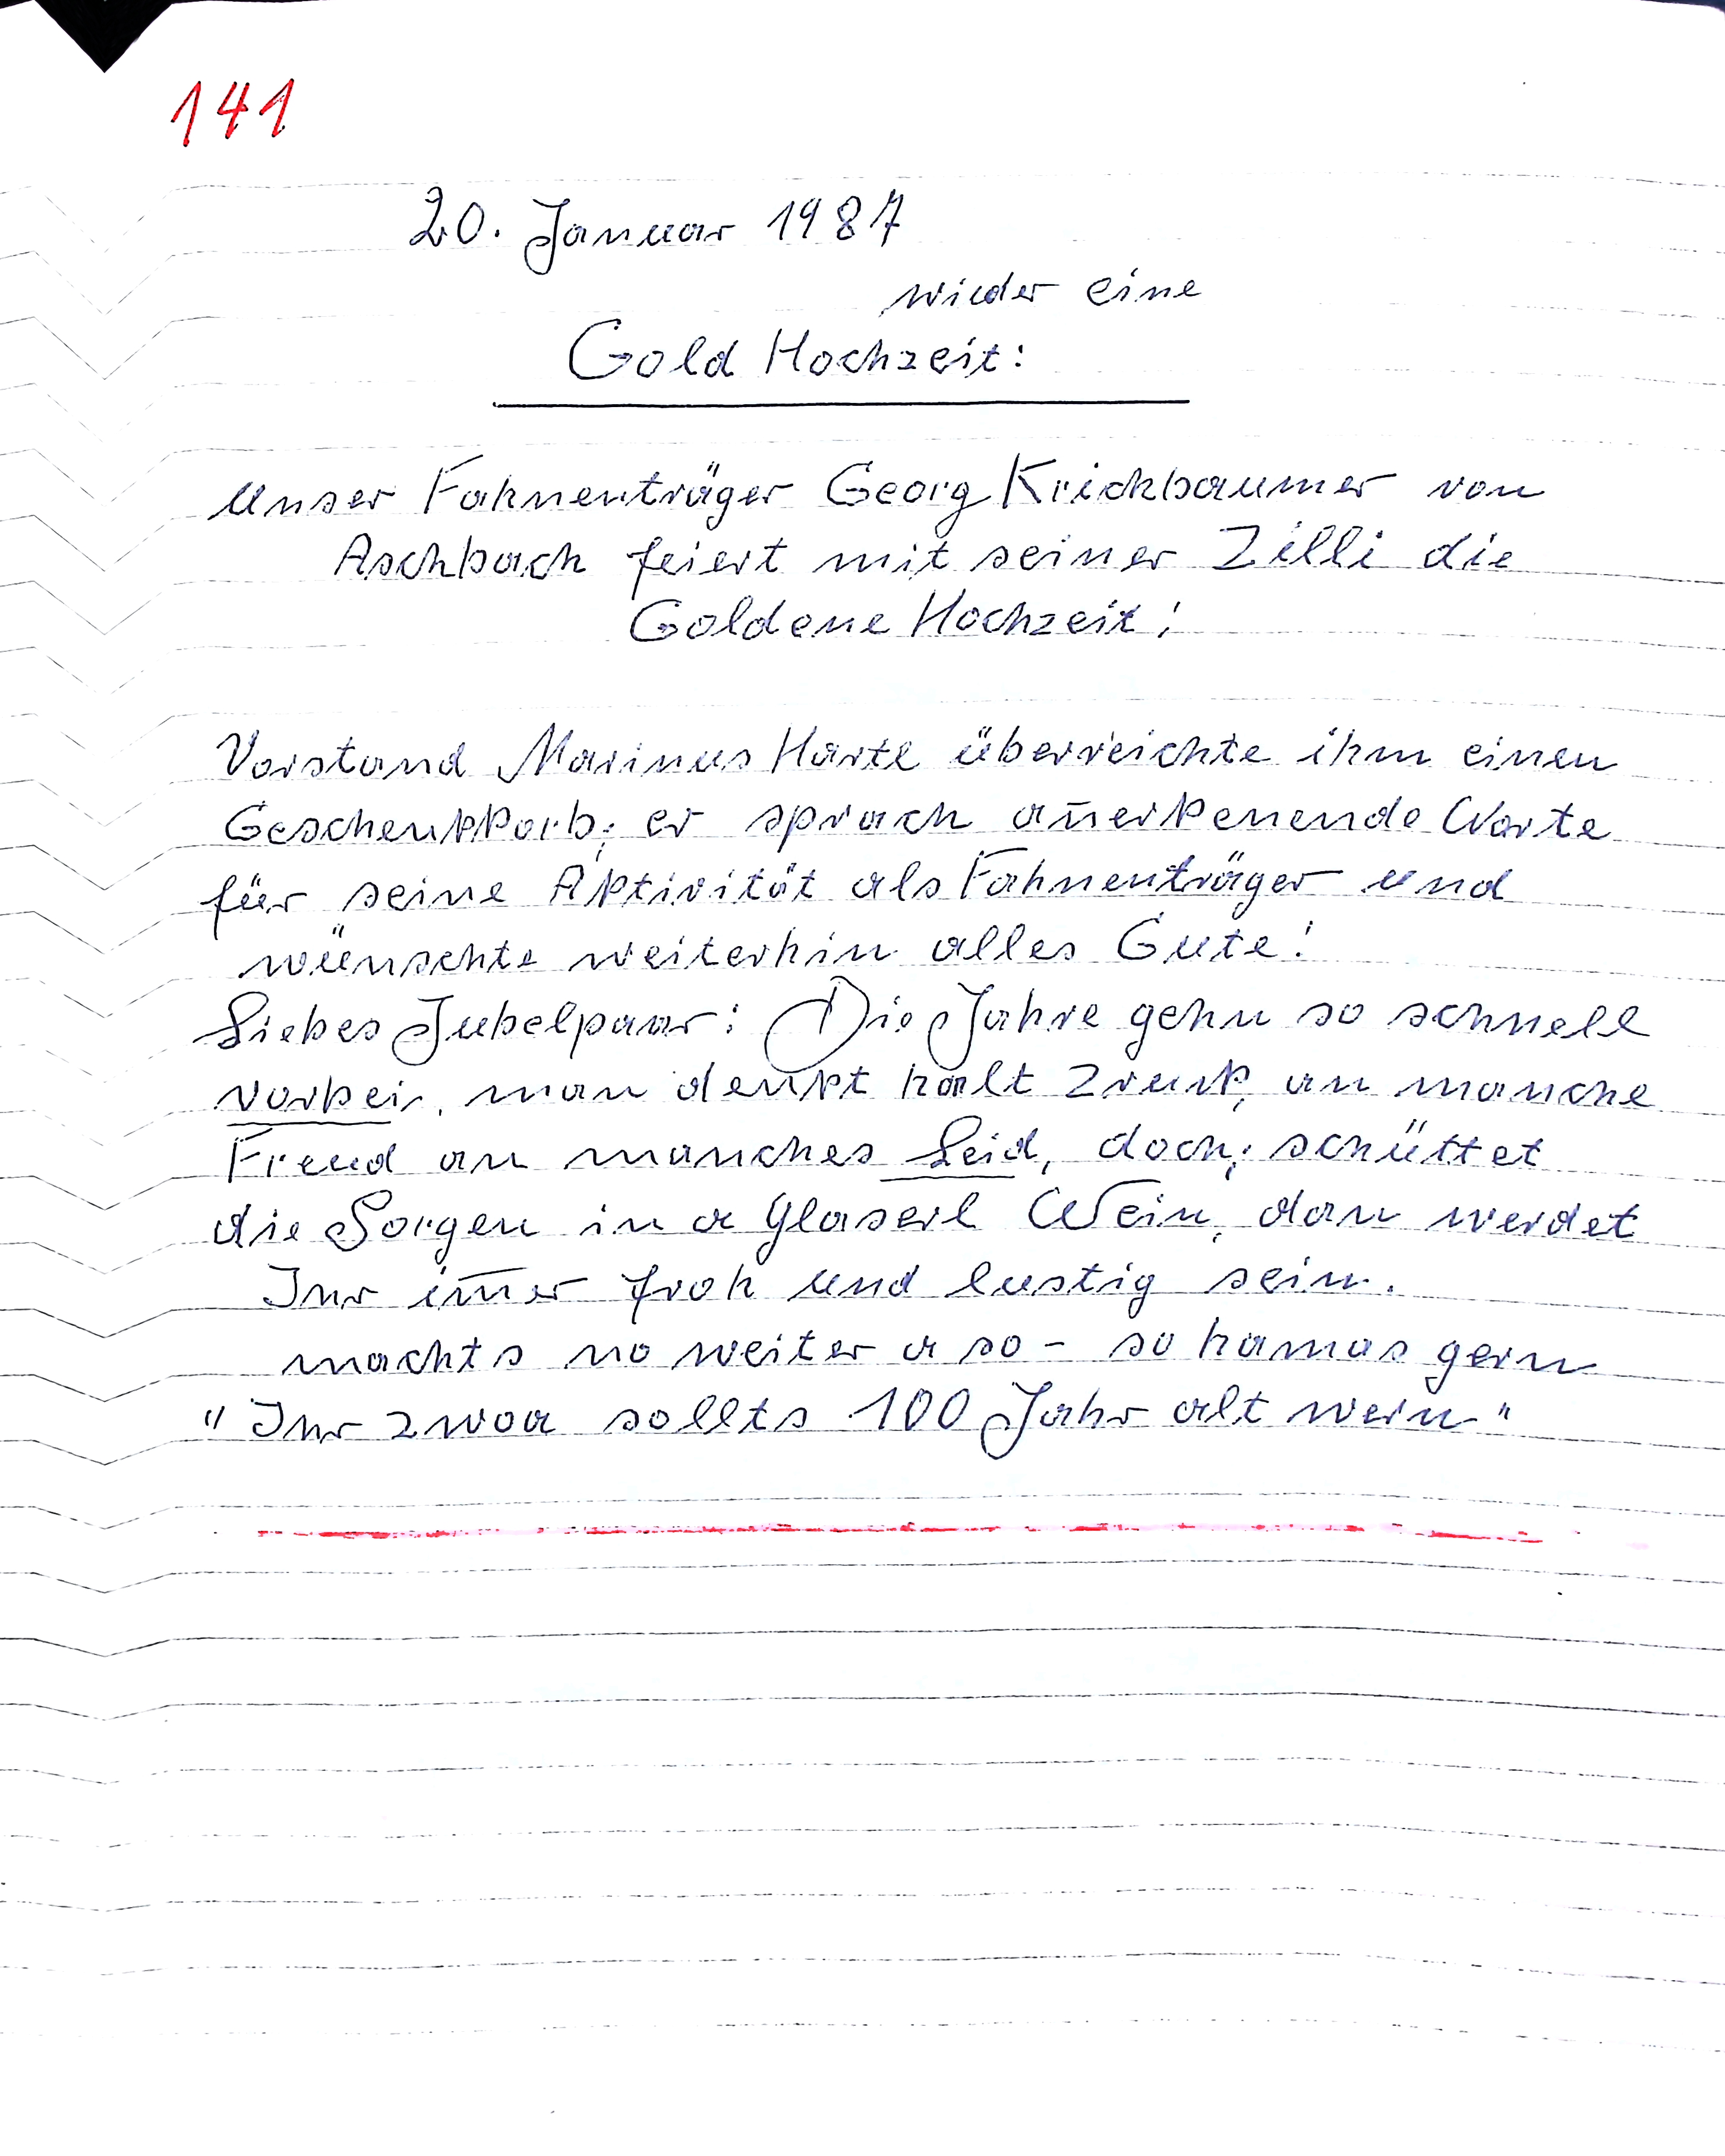 141
20. Januar 1987
wieder eine
Gold Hochzeit:
Unser Fahnenträger Georg Krickbaumer von
Aschbach feiert mit seiner Zilli die
Goldene Hochzeit!
Vorstand Marinus Hartl überreichte ihm einen
Geschenkkorb; er sprach an̄erkenende Worte
für seine Aktivität als Fahnenträger und
wünschte weiterhin alles Gute!
Liebes Jubelpaar: Die Jahre gehn so schnell
vorbei, man denkt halt zruk, an manche
Freud an manches Leid, doch; schüttet
die Sorgen in a Glaserl Wein, dan werdet
Ihr im̄er froh und lustig sein.
machts no weiter a so - so hamas gern
"Ihr zwoa sollts 100 Jahr alt wern"